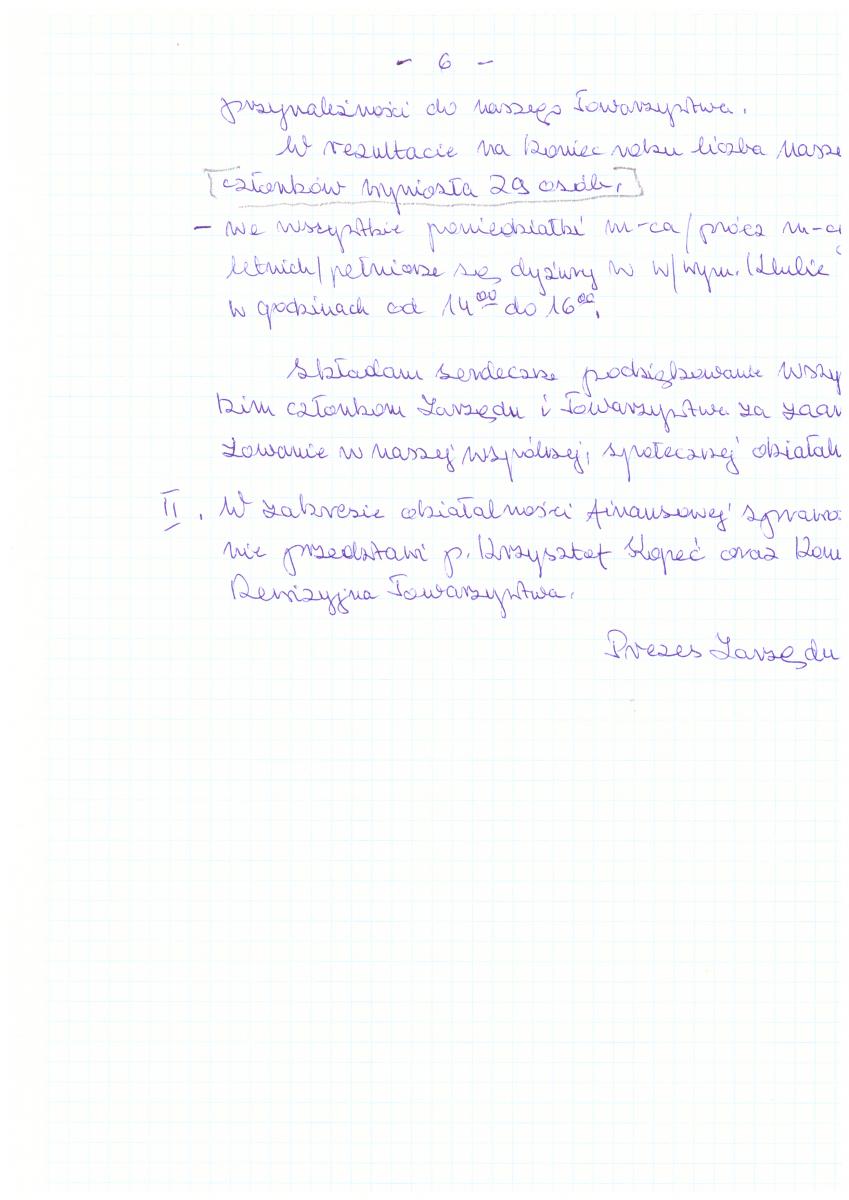 - 6 -
przynależności do naszego Towarzystwa.
W rezultacie na koniec roku liczba nasze
[członków wyniosła 29 osób.]
- we wszystkie poniedziałki m-ca /prócz m-cy
letnich/ pełnione są dyżury w w/wym. Klubie
w godzinach od 14⁰⁰ do 16⁰⁰.
Składam serdeczne podziękowanie wszy
kim członkom Zarządu i Towarzystwa za zaan
żowanie w naszej wspólnej, społecznej działaln
II. W zakresie działalności finansowej sprawoz
nie przedstawi p. Krzysztof Kopeć oraz Kom
Rewizyjna Towarzystwa.
Prezes Zarządu